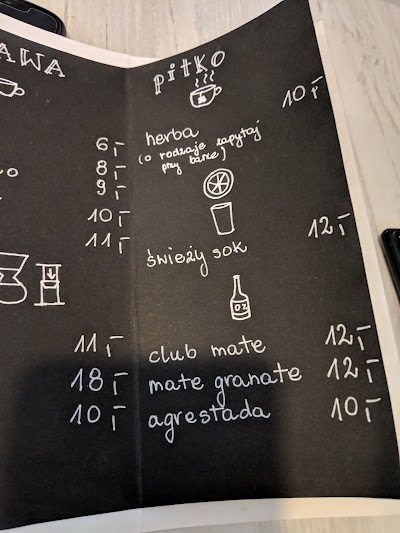 AWA
6,-
8,-
9,-
10,-
11,-
11,-
18,-
10,-
pitko
herba 10,-
(o rodzaje zapytaj
przy barze)
świeży sok 12,-
club mate 12,-
mate granate 12,-
agrestada 10,-